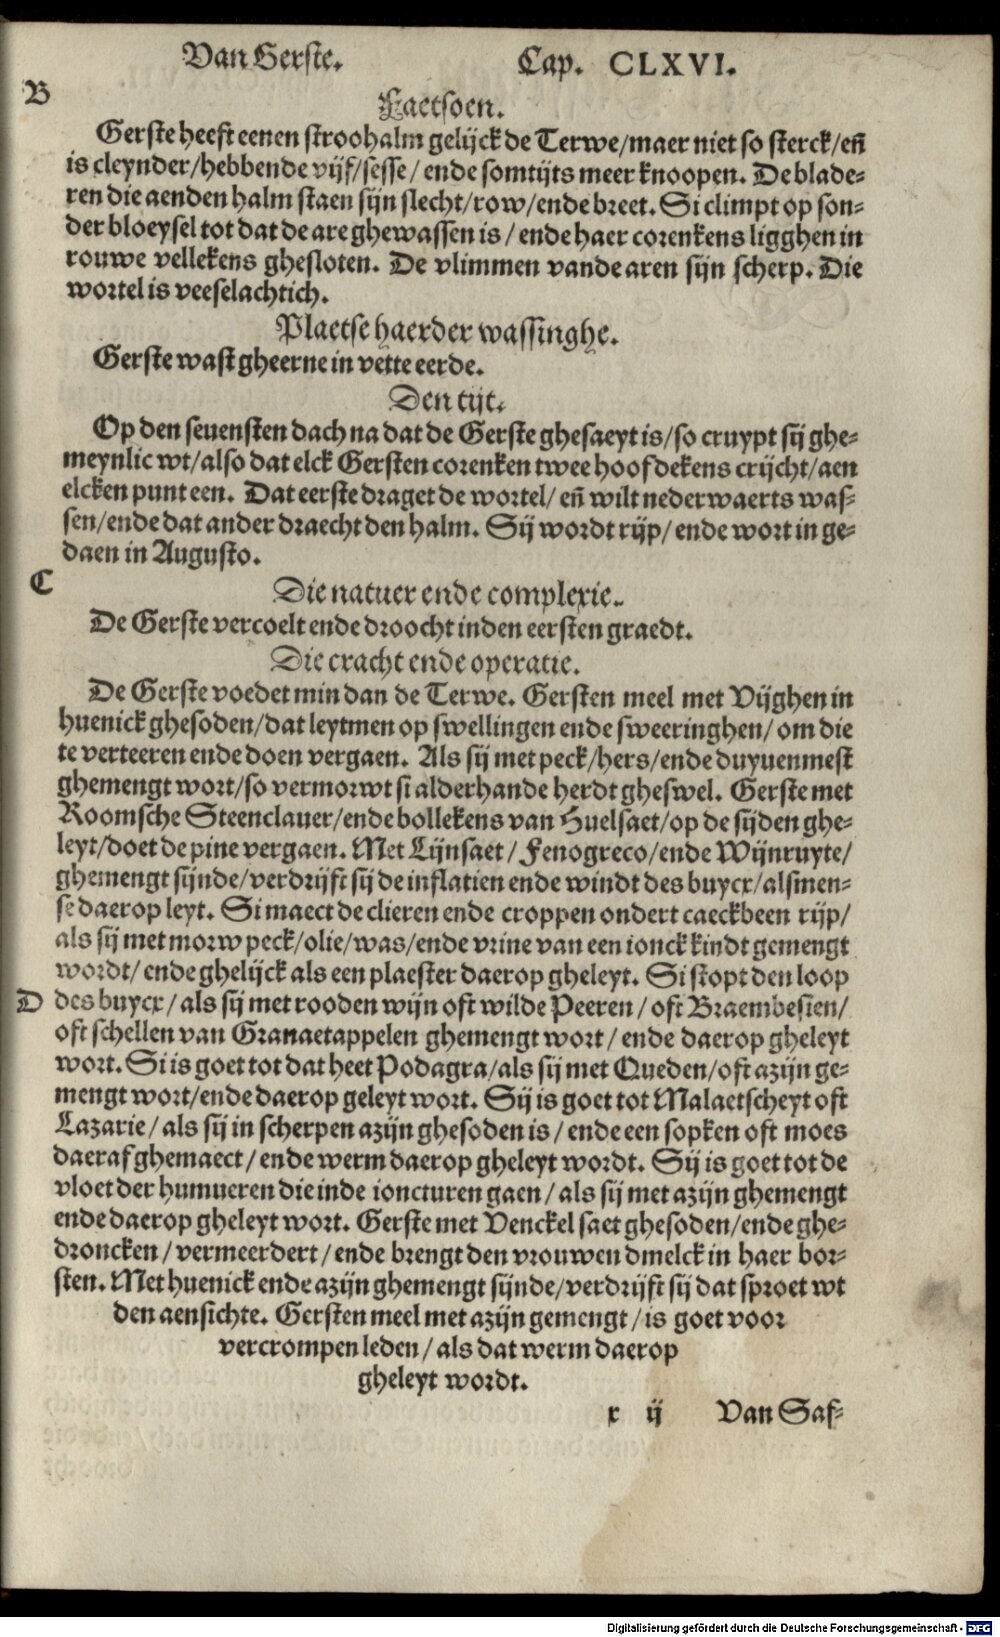 Van Gerste. Cap. CLXVI.
B
Faetsoen.
Gerste heeft eenen stroohalm gelijck de Terwe/maer niet so sterck/en̄
is cleynder/hebbende vijf/sesse/ende somtijts meer knoopen. De blade-
ren die aenden halm staen sijn slecht/row/ende breet. Si climpt op son-
der bloeysel tot dat de are ghewassen is/ende haer corenkens ligghen in
rouwe vellekens ghesloten. De vlimmen vande aren sijn scherp. Die
wortel is veeselachtich.
Plaetse haerder wassinghe.
Gerste wast gheerne in vette eerde.
Den tijt.
Op den seuensten dach na dat de Gerste ghesaeyt is/so cruypt sij ghe-
meynlic wt/also dat elck Gersten corenken twee hoofdekens crijcht/aen
elcken punt een. Dat eerste draget de wortel/en̄ wilt nederwaerts was-
sen/ende dat ander draecht den halm. Sij wordt rijp/ende wort in ge-
daen in Augusto.
C
Die natuer ende complexie.
De Gerste vercoelt ende droocht inden eersten graedt.
Die cracht ende operatie.
De Gerste voedet min dan de Terwe. Gersten meel met Vijghen in
huenick ghesoden/dat leytmen op swellingen ende sweeringhen/om die
te verteeren ende doen vergaen. Als sij met peck/hers/ende duyuenmest
ghemengt wort/so vermorwt si alderhande herdt gheswel. Gerste met
Roomsche Steenclauer/ende bollekens van Huelsaet/op de sijden ghe-
leyt/doet de pine vergaen. Met Lijnsaet/Fenogreco/ende Wijnruyte/
ghemengt sijnde/verdrijft sij de inflatien ende windt des buycx/alsmen-
se daerop leyt. Si maect de clieren ende croppen ondert caeckbeen rijp/
als sij met morw peck/olie/was/ende vrine van een ionck kindt gemengt
wordt/ende ghelijck als een plaester daerop gheleyt. Si stopt den loop
D des buycx/als sij met rooden wijn oft wilde Peeren/oft Braembesien/
oft schellen van Granaetappelen ghemengt wort/ende daerop gheleyt
wort. Si is goet tot dat heet Podagra/als sij met Queden/oft azijn ge-
mengt wort/ende daerop geleyt wort. Sij is goet tot Malaetscheyt oft
Lazarie/als sij in scherpen azijn ghesoden is/ende een sopken oft moes
daeraf ghemaect/ende werm daerop gheleyt wordt. Sij is goet tot de
vloet der humueren die inde ioncturen gaen/als sij met azijn ghemengt
ende daerop gheleyt wort. Gerste met Venckel saet ghesoden/ende ghe-
droncken/vermeerdert/ende brengt den vrouwen dmelck in haer bor-
sten. Met huenick ende azijn ghemengt sijnde/verdrijft sij dat sproet wt
den aensichte. Gersten meel met azijn gemengt/is goet voor
vercrompen leden/als dat werm daerop
gheleyt wordt.
x ij Van Saf-
Digitalisierung gefördert durch die Deutsche Forschungsgemeinschaft - DFG